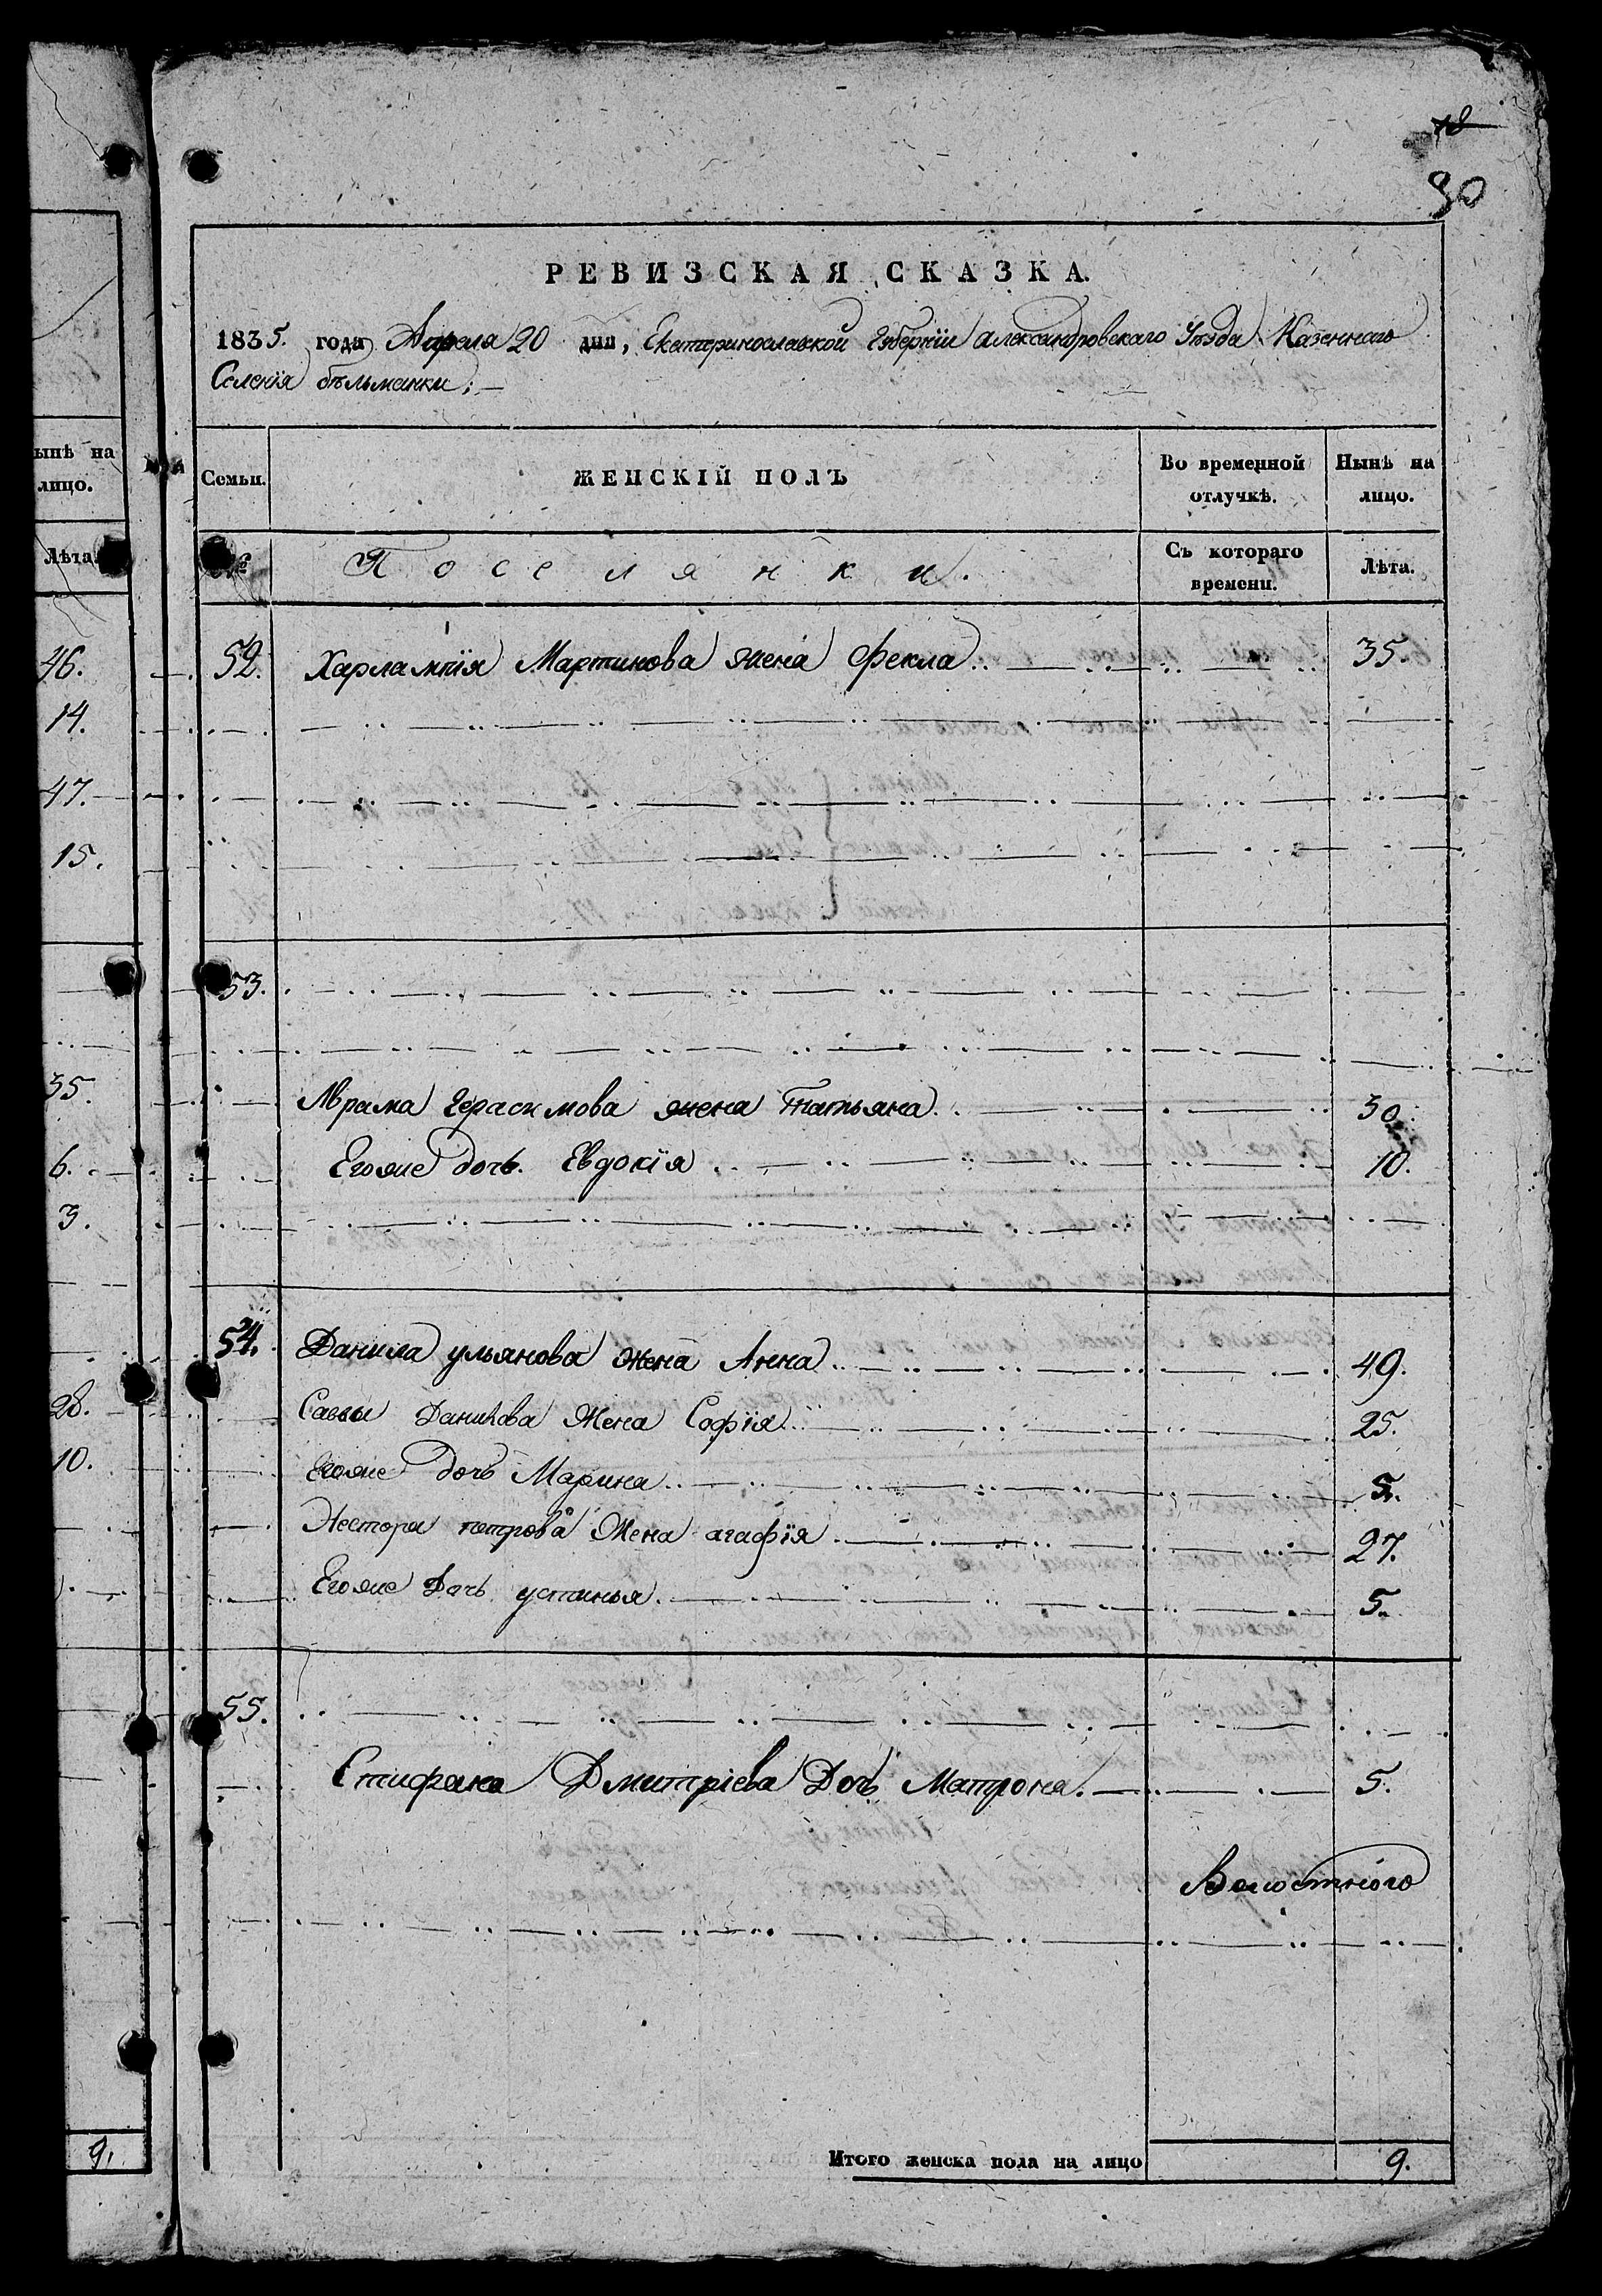 18
30
РЕВИЗСКАЯ СКАЗКА.
1835. года Апреля 20 дня, Екатеринославской Губернiи Александровскаго Уѣзда Казеннаго
Селенiя бѣльманки;
ынѣ на
лицо.
Лѣта.
Семьи.
ЖЕНСКІЙ ПОЛЪ
Во временной отлучкѣ.
Нынѣ на лицо.
№
Поселянки.
Съ котораго времени.
Лѣта.
46.
14.
47.
15.
35.
6.
3.
28.
10.
9.
52. Харлампiя Мартинова жена Фекла 35.
53.
Аврама Герасимова жена Татьяна 30.
Егоже дочь Евдокiя 10.
54. Данила ульянова жена Анна 49.
Саввы Данилова Жена Софiя 25.
Егоже дочь Марина 5.
Нестора петрова Жена агафiя 27.
Егоже Дочь устинья 5.
55.
Епифана Дмитрiева Дочь Матрона 5.
Волостного
Итого женска пола на лицо 9.